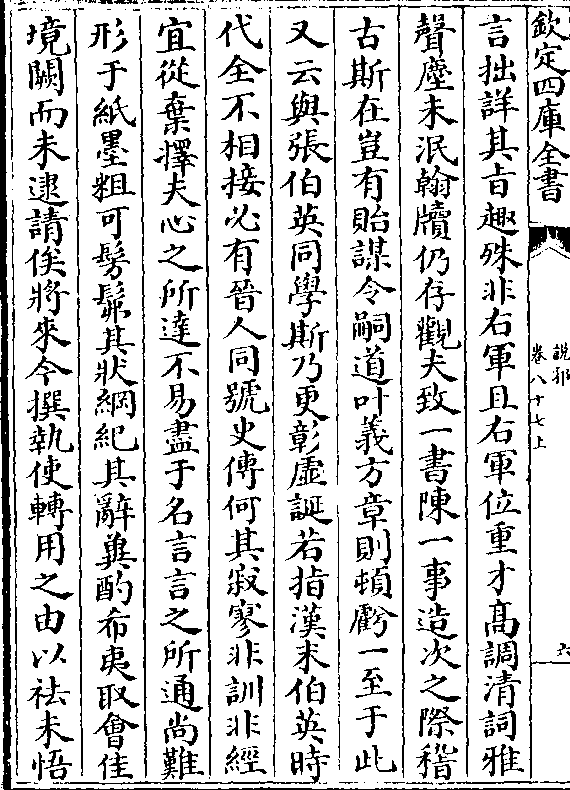 欽定四庫全書
說郛
卷八十七上
六
言拙詳其旨趣殊非右軍且右軍位重才高調清詞雅
聲塵未泯翰牘仍存觀夫致一書陳一事造次之際稽
古斯在豈有貽謀令嗣道叶義方章則頓虧一至于此
又云與張伯英同學斯乃更彰虛誕若指漢末伯英時
代全不相接必有晉人同號史傳何其寂寥非訓非經
宜從棄擇夫心之所達不易盡于名言言之所通尚難
形于紙墨粗可髣髴其狀綱紀其辭冀酌希夷取會佳
境闕而未逮請俟將來今撰執使轉用之由以祛未悟